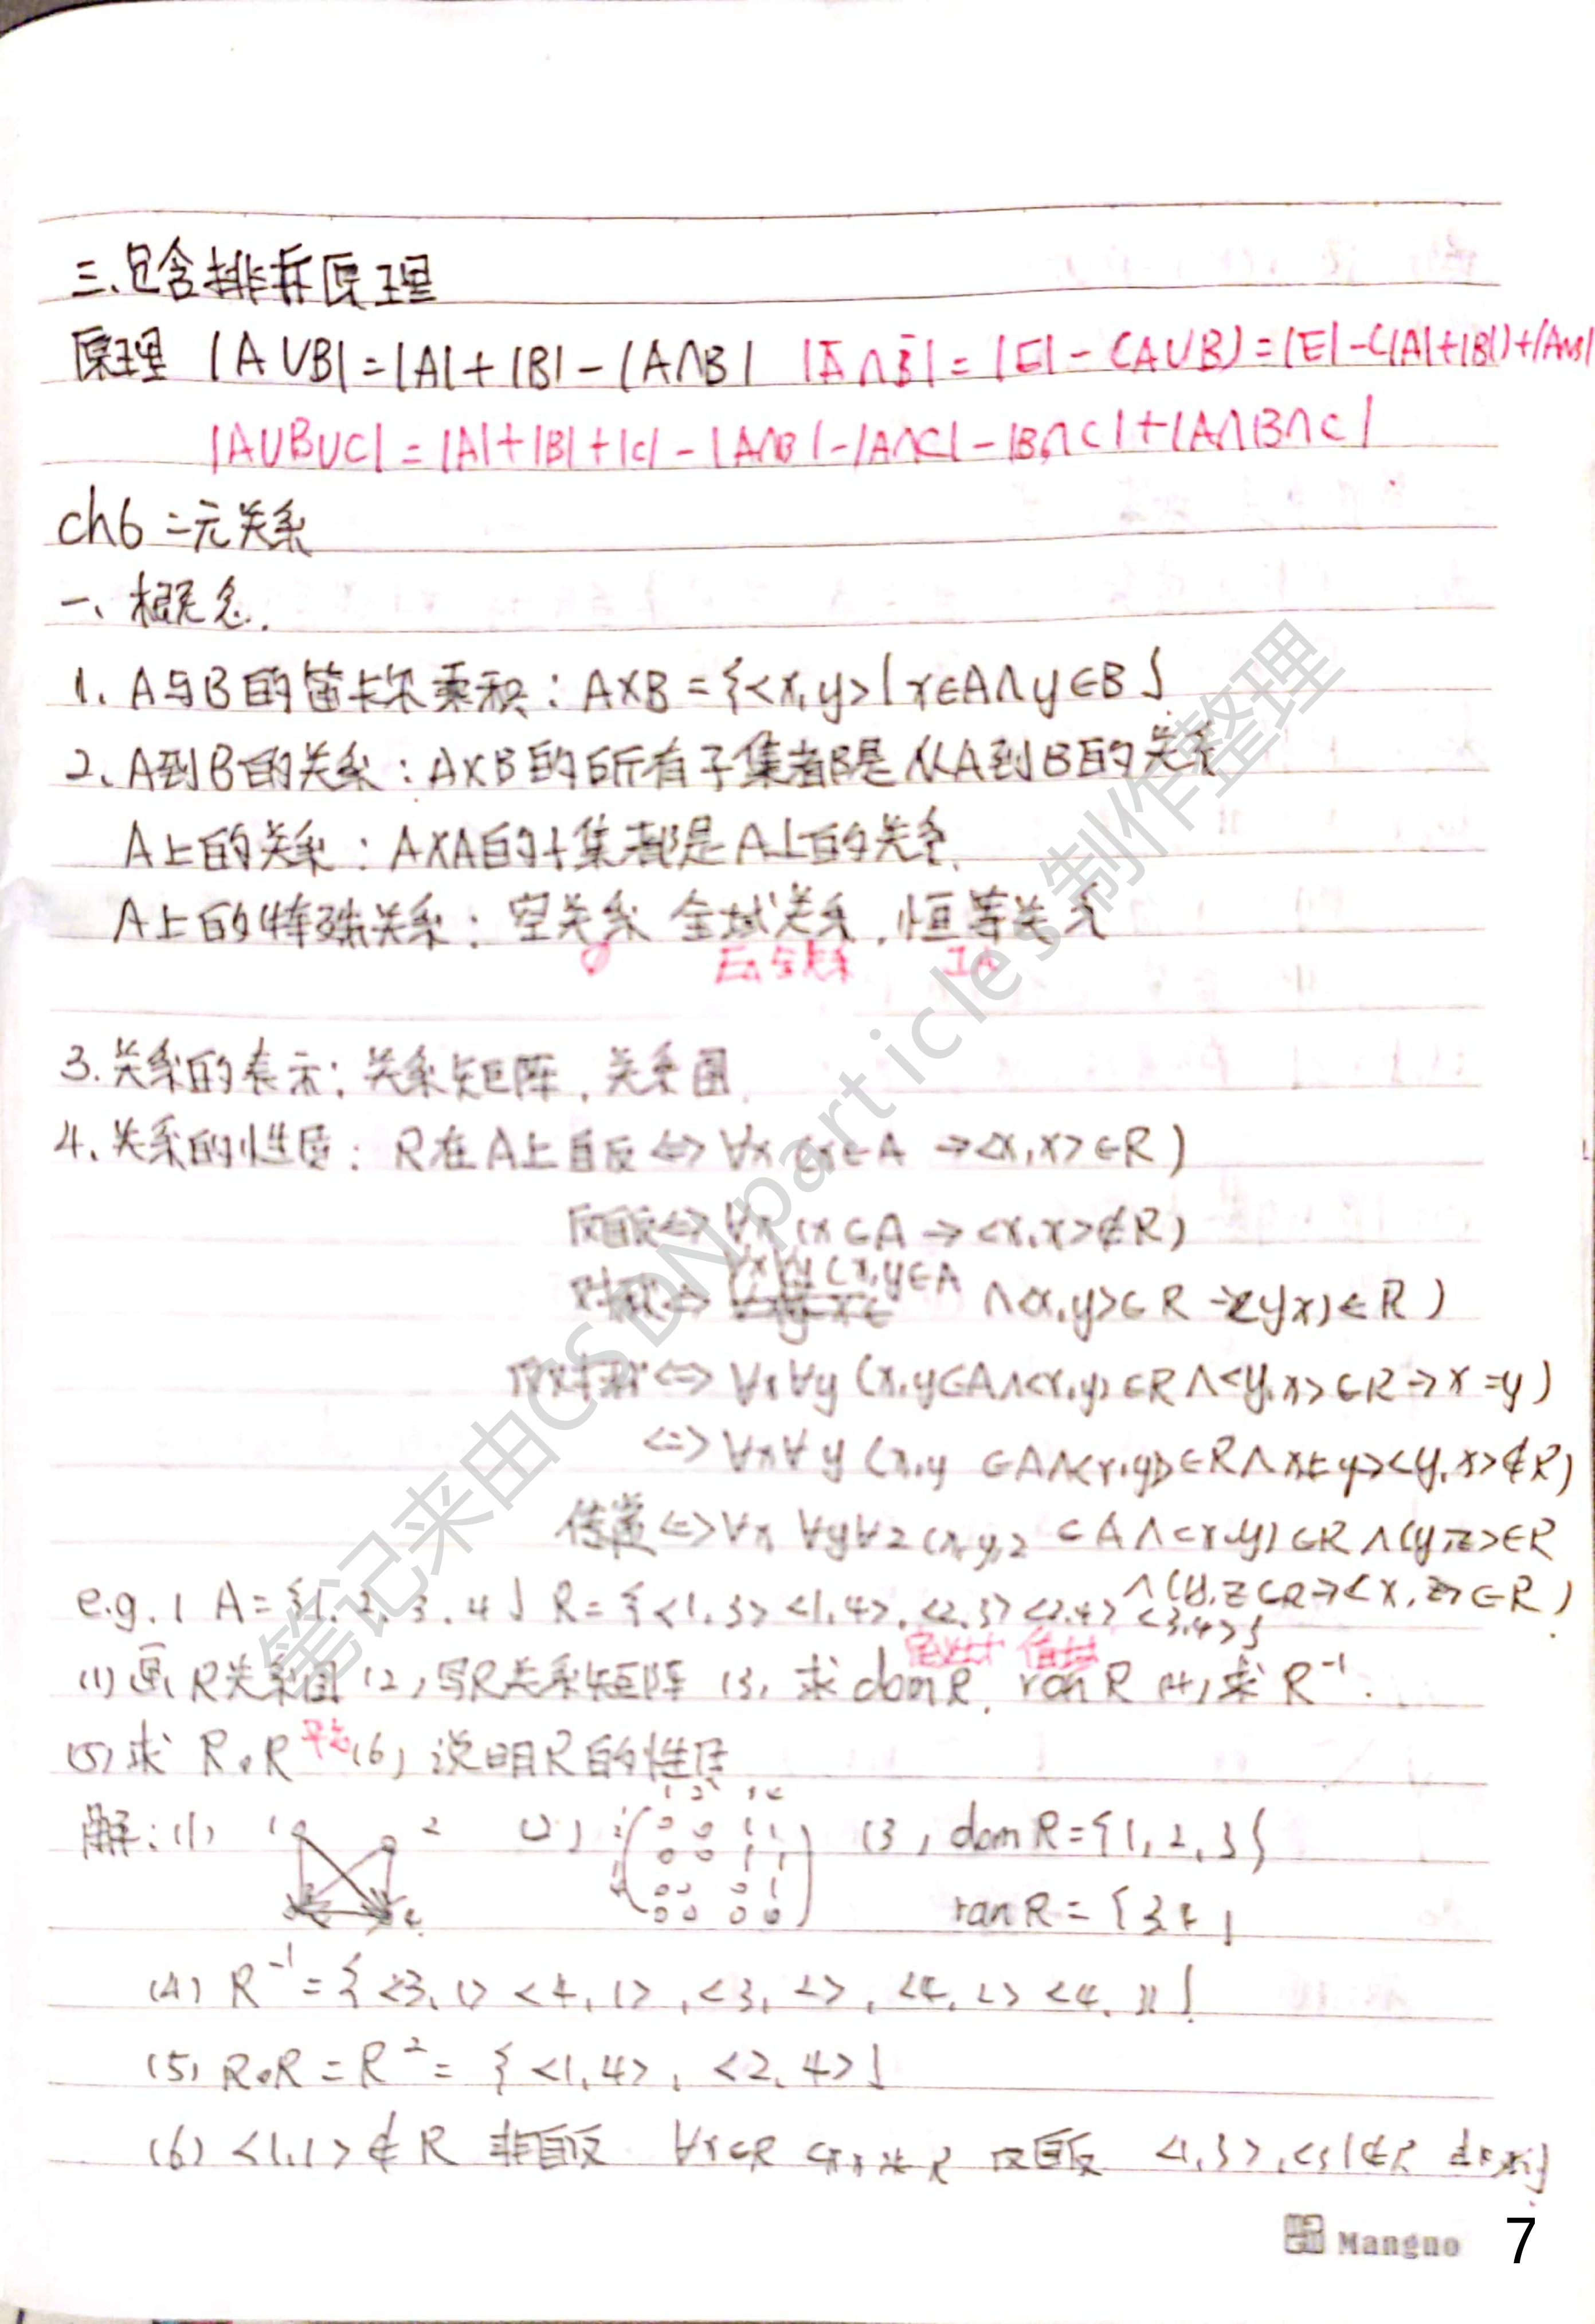 三、包含排斥原理
原理 |A∪B|=|A|+|B|-|A∩B| |Ā∩B̄|=|E|-(A∪B)=|E|-(|A|+|B|)+|A∩B|
|A∪B∪C|=|A|+|B|+|C|-|A∩B|-|A∩C|-|B∩C|+|A∩B∩C|
ch6 二元关系
一、概念.
1、A与B的笛卡尔乘积：A×B={<x,y>|x∈A∧y∈B}
2、A到B的关系：A×B的所有子集都是从A到B的关系
A上的关系：A×A的子集都是A上的关系.
A上的特殊关系：空关系 全域关系，恒等关系
∅ 关系 IA
3.关系的表示：关系矩阵，关系图
4、关系的性质：R在A上自反⇔∀x(x∈A→<x,x>∈R)
反自反⇔∀x(x∈A→<x,x>∉R)
对称⇔∀x∀y(x,y∈A∧<x,y>∈R→<y,x>∈R)
反对称⇔∀x∀y(x,y∈A∧<x,y>∈R∧<y,x>∈R→x=y)
⇔∀x∀y(x,y∈A∧<x,y>∈R∧x≠y→<y,x>∉R)
传递⇔∀x∀y∀z(x,y,z∈A∧<x,y>∈R∧<y,z>∈R
∧(y,z∈R→<x,z>∈R)
e.g.1 A={1,2,3,4} R={<1,3><1,4>,<2,3><2,4>,<3,4>}
定义域 值域
(1)画R关系图(2)写R关系矩阵(3)求domR, ranR(4)求R⁻¹.
(5)求R∘R 平方(6)说明R的性质
1 2 3 4
解：(1) 1 2 (2) (3) domR={1,2,3}
0 0 1 1
0 0 1 1
0 0 0 1
0 0 0 0
ranR={3,4}
(4) R⁻¹={<3,1><4,1>,<3,2>,<4,2><4,3>}
(5) R∘R=R²={<1,4>,<2,4>}
(6) <1,1>∉R 非自反 ∀x∈R <x,x>∉R 反自反 <1,3>,<3,1>∉R
Mangno 7
笔记来由CSDNparticles制作整理